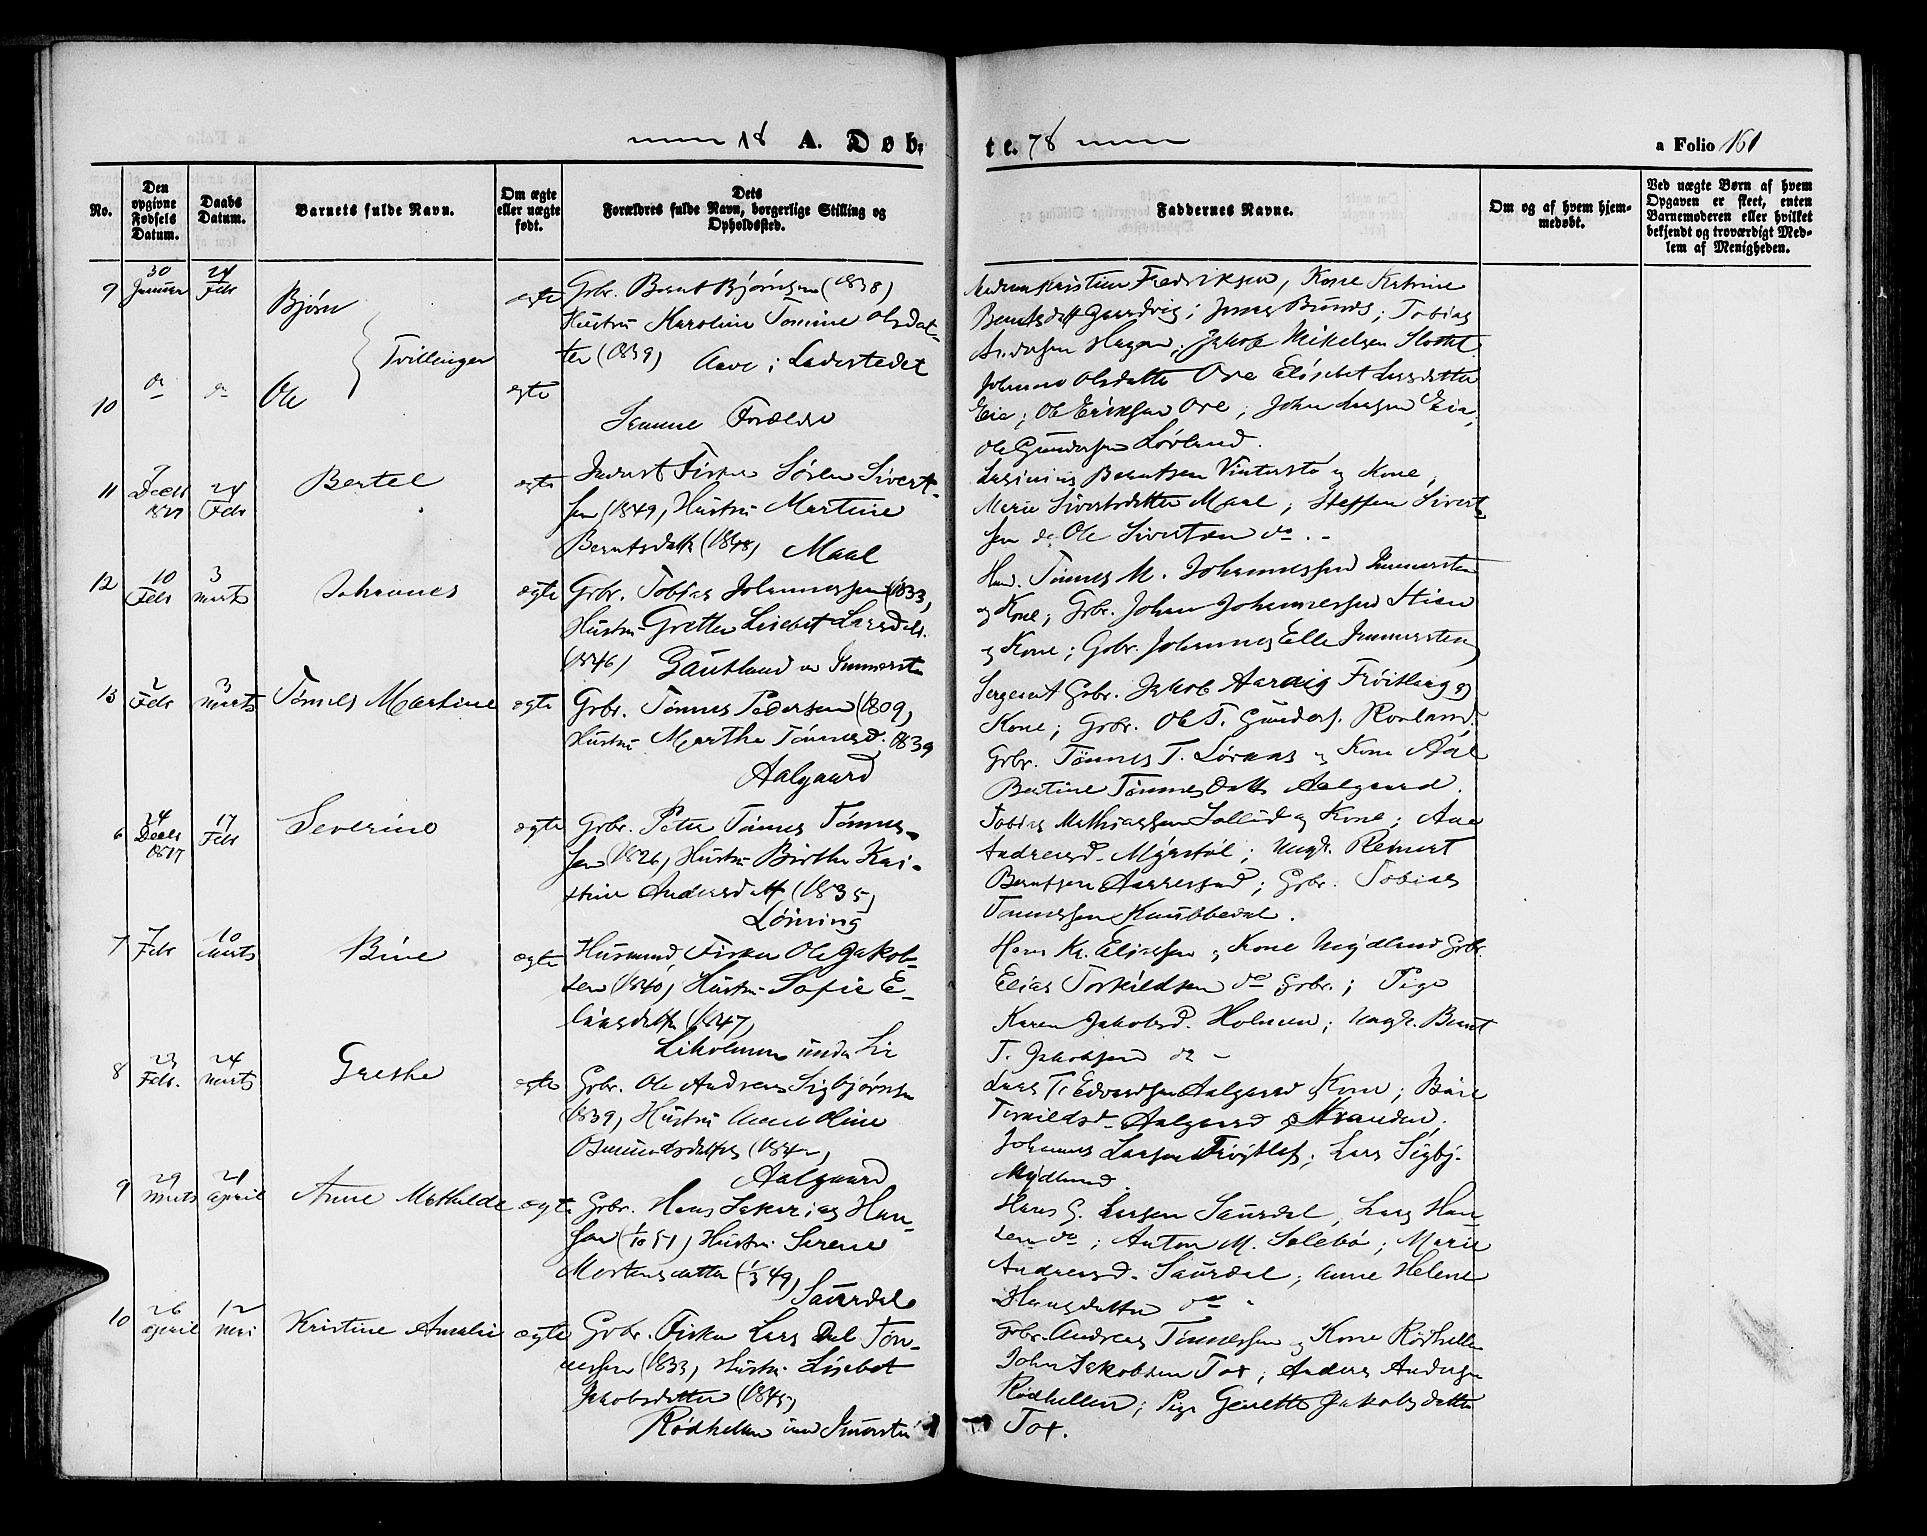 18 A. Døb-
te. 78
a Folio 161
No.
Den opgivne Fødsels Datum.
Daabs Datum.
Barnets fulde Navn.
Om ægte eller uægte født.
Dets Forældres fulde Navn, borgerlige Stilling og Opholdssted.
Faddernes Navne.
Om og af hvem hjemmedøbt.
Ved uægte Børn af hvem Opgaven er skeet, enten Barnemoderen eller hvilket bekjendt og troværdigt Medlem af Menigheden.
9 30 Januar 24 Febr Bjørn ægte Grbr. Bernt Bjørnsen (1838)
Hustru Karoline Tomine Olsdat-
ter (1839) Aave i Ladestedet
Tvillinger
10 do do Ole ægte
Samme Forældre
Kristian Fredriksen, Kone Katrine
Berntsdatt Jonas Tobias
Andersen Hagen; Jakob Mikelsen
Johanne Olsdatter Ore Elisebet Larsdatter
Eie; Ole Eriksen Ore; John Larsen Eie,
Ole Gundersen Løvland.
11 7 Decbr 1877 24 Febr Bertel ægte Inderst Fisker Søren Sivert-
sen (1849, Hustru Martine
Berntsdatt (1848) Maal
Berntsen Vintersto og Kone,
Marie Sivertsdatter Maal; Steffen Sivert-
sen do Ole Sivertsen do
12 10 Febr 3 Marts Johannes ægte Grbr. Tobias Johannessen (1833,
Hustru Grethe Lisebet Larsdtr.
(1846) Gautland
Tønnes M. Johannessen
og Kone; Grbr. John Johannessen
og Kone; Grbr. Johannes Elle
13 2 Febr 3 Marts Tønnes Martine ægte Grbr. Tønnes Pedersen (1809,
Hustru Marthe Tønnesd. 1839
Aalgaard
Sergeant Grbr. Jakob Frøitlog og
Kone; Grbr. Ole T. Gunders.
Grbr. Tønnes T. og Kone
Bertine Tønnesdatt Aalgaard.
6 24 Decbr 1877 17 Febr Severine ægte Grbr. Peter Tønnes Tønnes-
sen (1826, Hustru Birthe Kri-
stine Andersdatt (1835)
Løining
Tobias Mathiassen og Kone; Ane
Andreasd. Myrstøl; Ungk. Reinert
Berntsen; Grbr. Tobias
Tønnessen Knubbedal.
7 7 Febr 10 Marts Bine ægte Husmand, Fisker Ole Jakob-
sen (1840, Hustru Sofie E-
liasdatter (1847,
Liholmen under Li
Hans Kr. Eliassen og Kone Mydland Grbr.
Elias Torkildsen do Grbr.; Pige
Karen Jakobsd. Holmen; Ungk. Bernt
T. Jakobsen do
8 23 Febr. 24 Marts Grethe ægte Grbr. Ole Andreas Sigbjørnsen
1839, Hustru Anne Oline
Osmundsdatter (1842,
Aalgaard
Lars T. Edvardsen Aalgaard Kone; Bine
Torkildsd. Aalgaard
Johannes Larsen; Lars Sigbj.
Mydland.
9 29 Marts 21 April Anne Mathilde ægte Grbr. Hans Sakarias Han-
sen (1/10 51, Hustru Serene
Mortensdatter (1/3 49,
Saurdal
Hans G. Larsen Saurdal, Lars Han-
sen do; Anton M. Solebø; Marie
Andreasd. Saurdal; Anne Helene
Hansdatter do
10 26 April 12 Mai Kristine Amalie ægte Grbr. Fisker Lars Dal Tøn-
nessen (1833, Hustru Lisebet
Jakobsdatter (1845)
Rødhellen
Grbr. Andreas Tønnessen og Kone Rødhellen
John Jakobsen Tox; Anders Andersen
Rødhellen; Pige Genette Jakobsdatter
Tox.